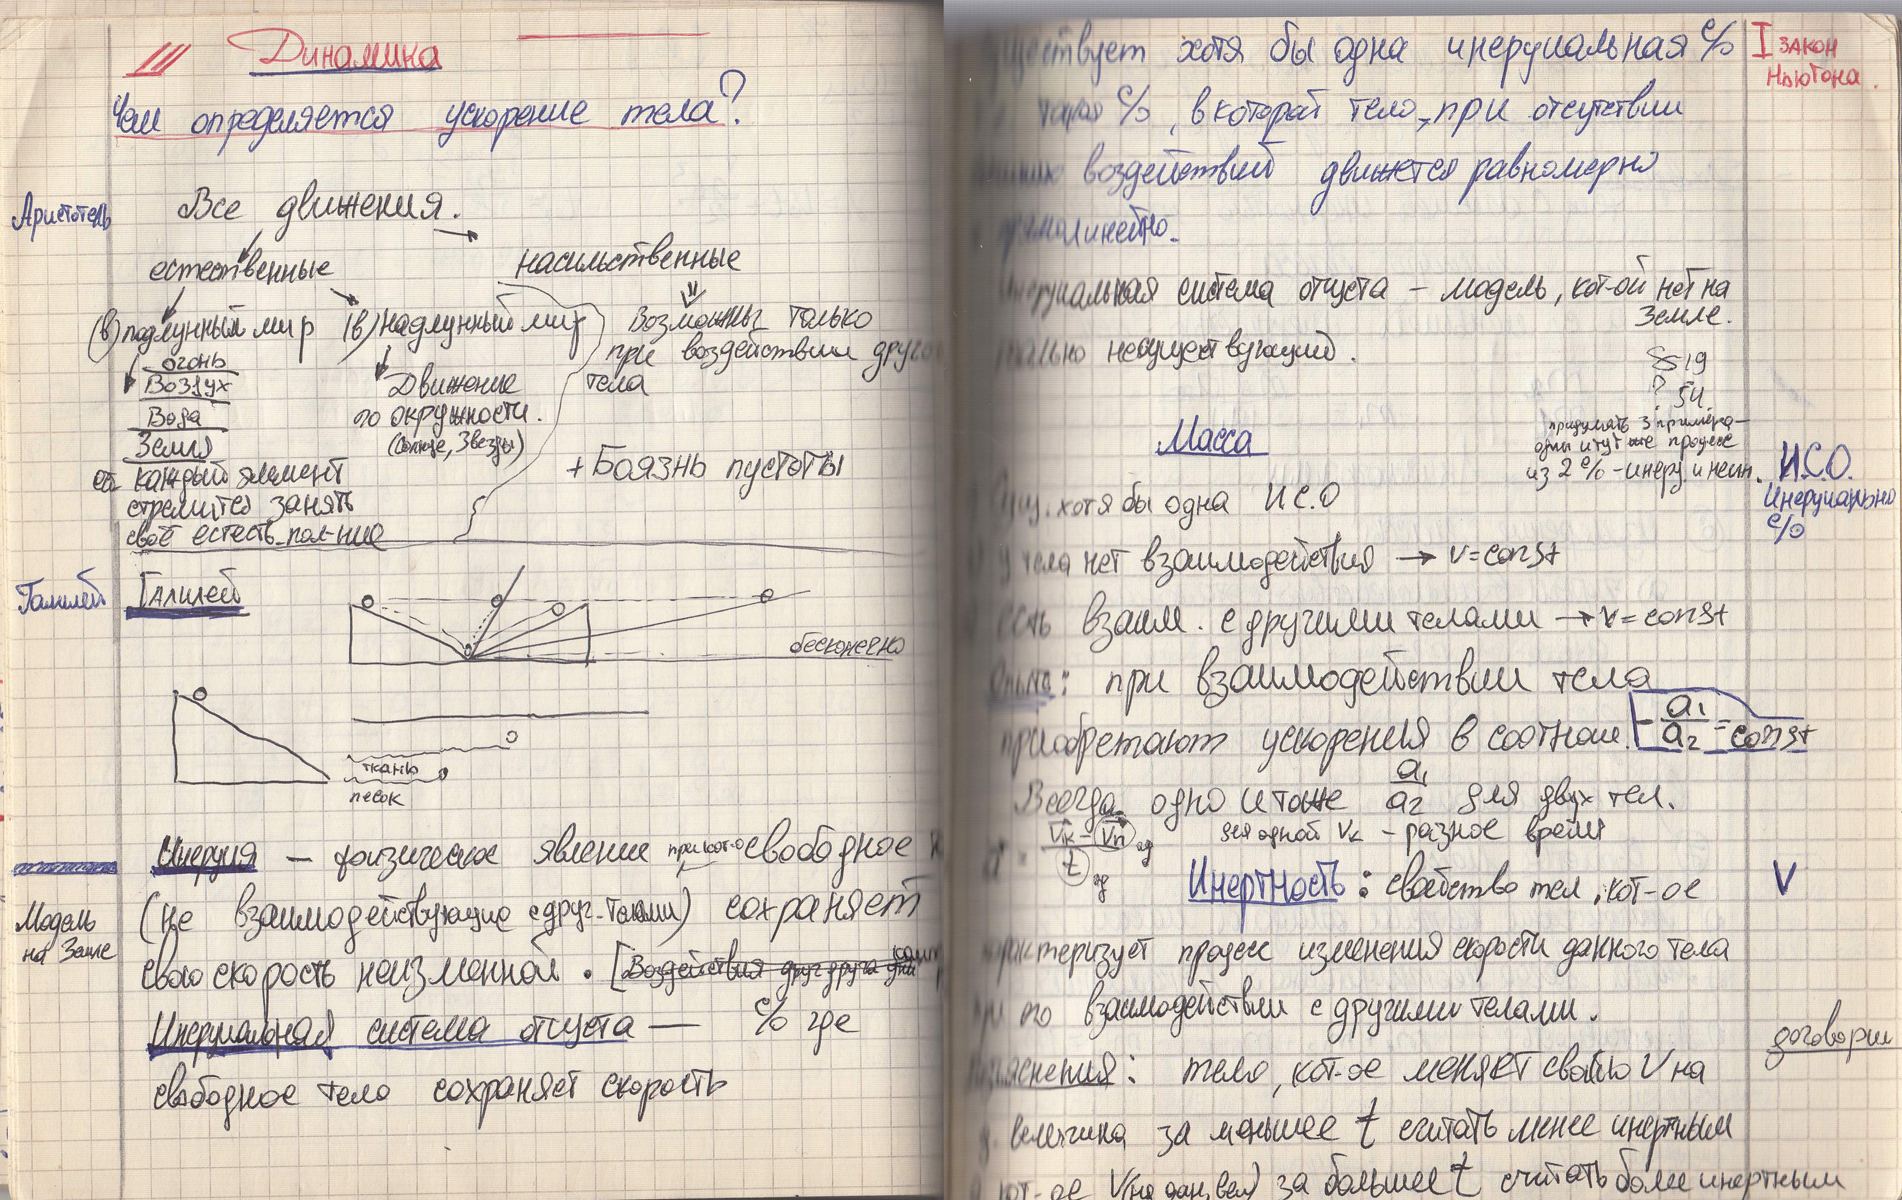 III Динамика
Чем определяется ускорение тела?
Аристотель
Все движения.
естественные
насильственные
(в) подлунный мир
(в) надлунный мир
Возможны только
при воздействии друго
тела
огонь
Воздух
Вода
Земля
Движение
по окружности.
(Солнце, Звезды)
каждый элемент
стремится занять
своё естеств. пол-ние
+ Боязнь пустоты
Галилей
Галилей
бесконечно
ткань
песок
Инерция — физическое явление при кот-о свободное
Модель
на Земле
(не взаимодействующие с друг. телами) сохраняет
свою скорость неизменной. [Воздействия друг друга
Инерциальная система отсчета — с/о где
свободное тело сохраняет скорость
I закон
Ньютона.
ществует хотя бы одна инерциальная с/о
такая с/о, в которой тело, при отсутствии
воздействий движется равномерно
прямолинейно.
Инерциальная система отсчета — модель, кот-ой нет на
Земле.
реально несуществующий.
§ 19
? 54.
придумать 3 примера —
один и тот же процесс
из 2 с/о - инерц. и неин.
Масса
И.С.О.
Инерциально
с/о
Сущ. хотя бы одна И.С.О
у тела нет взаимодействия → v = const
есть взаим. с другими телами → v = const
Опыт: при взаимодействии тела
приобретают ускорения в соотнош. - a₁/a₂ = const
Всегда одно и тоже a₁/a₂ для двух тел.
Vк - Vн / t для одной Vк - разное время
Инертность: свойство тел, кот-ое
V
характеризует процесс изменения скорости данного тела
при его взаимодействии с другими телами.
договори
Пояснения: тело, кот-ое меняет свою V на
величина за меньшее t считать менее инертным
кот-ое V (на дан. вел) за большее t считать более инертным